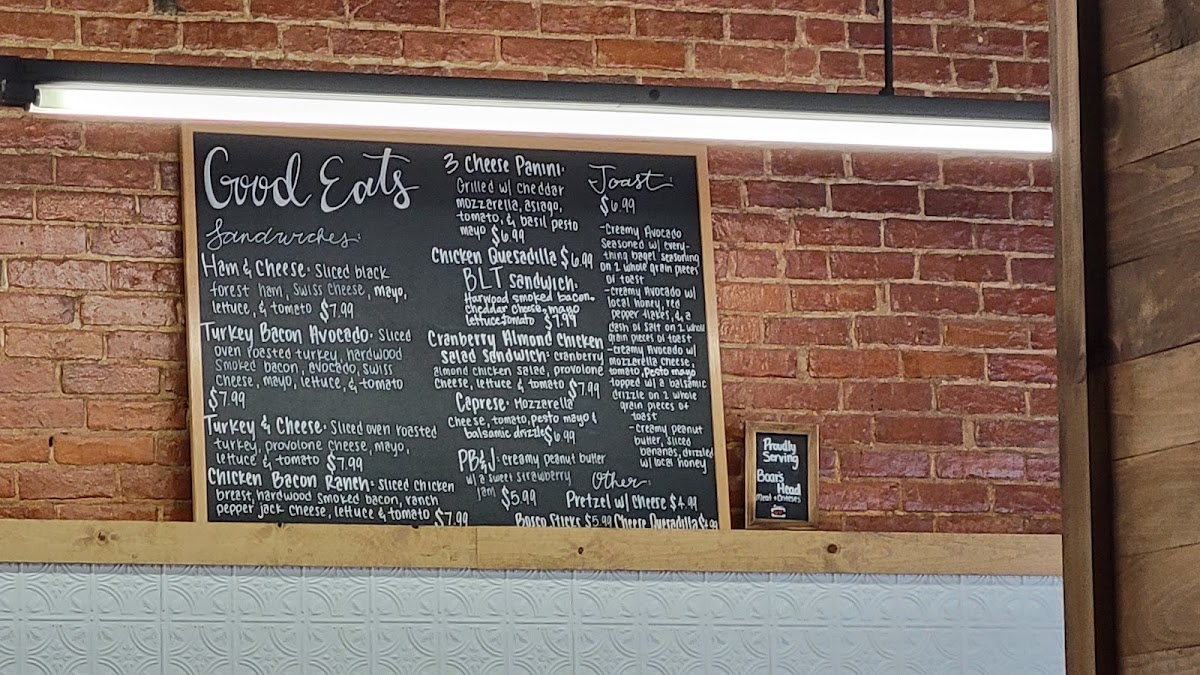 Good Eats
Sandwiches:
Ham & Cheese: Sliced black
forest ham, Swiss cheese, mayo,
lettuce, & tomato $7.99
Turkey Bacon Avocado: Sliced
oven roasted turkey, hardwood
smoked bacon, avocado, Swiss
cheese, mayo, lettuce, & tomato
$7.99
Turkey & Cheese: Sliced oven roasted
turkey, provolone cheese, mayo,
lettuce & tomato $7.99
Chicken Bacon Ranch: Sliced chicken
breast, hardwood smoked bacon, ranch
pepper jack cheese, lettuce & tomato $7.99
3 Cheese Panini:
Grilled w/ cheddar
mozzarella, asiago,
tomato, & basil pesto
mayo $6.99
Chicken Quesadilla $6.99
BLT Sandwich:
Harwood smoked bacon,
cheddar cheese, mayo
lettuce, tomato $7.99
Cranberry Almond Chicken
Salad Sandwich: cranberry
almond chicken salad, provolone
cheese, lettuce & tomato $7.99
Caprese: Mozzarella
cheese, tomato, pesto mayo &
balsamic drizzle $6.99
PB&J: creamy peanut butter
w/ a sweet strawberry
jam $5.99
Toast:
$6.99
-Creamy Avocado
Seasoned w/ every-
thing bagel seasoning
on 2 whole grain pieces
of toast
-Creamy Avocado w/
local honey, red
pepper flakes, & a
dash of salt on 2 whole
grain pieces of toast
-Creamy Avocado w/
mozzarella cheese,
tomato, pesto mayo
topped w/ a balsamic
drizzle on 2 whole
grain pieces of
toast
-Creamy peanut
butter, sliced
bananas, drizzled
w/ local honey
Other:
Pretzel w/ Cheese $4.99
Bosco Sticks $5.99 Cheese Quesadilla
Proudly
Serving
Boar's
Head
Meat & Cheeses